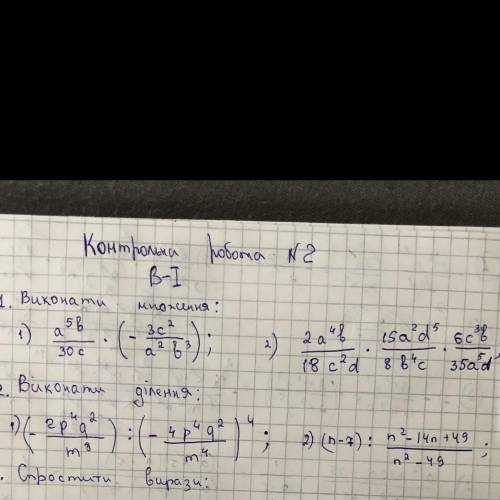 Контрольна робота №2
В-I
1. Виконати множення:
1) a⁵b/30c · (- 3c²/a²b³); 2) 2a⁴b/18c²d · 15a²d⁵/8b⁴c · 6c³b/35a⁵d
2. Виконати ділення:
1) (- 2p⁴q²/m³) : (- 4p⁴q²/m⁴)⁴; 2) (n-7) : n²-14n+49/n²-49;
Спростити вирази: